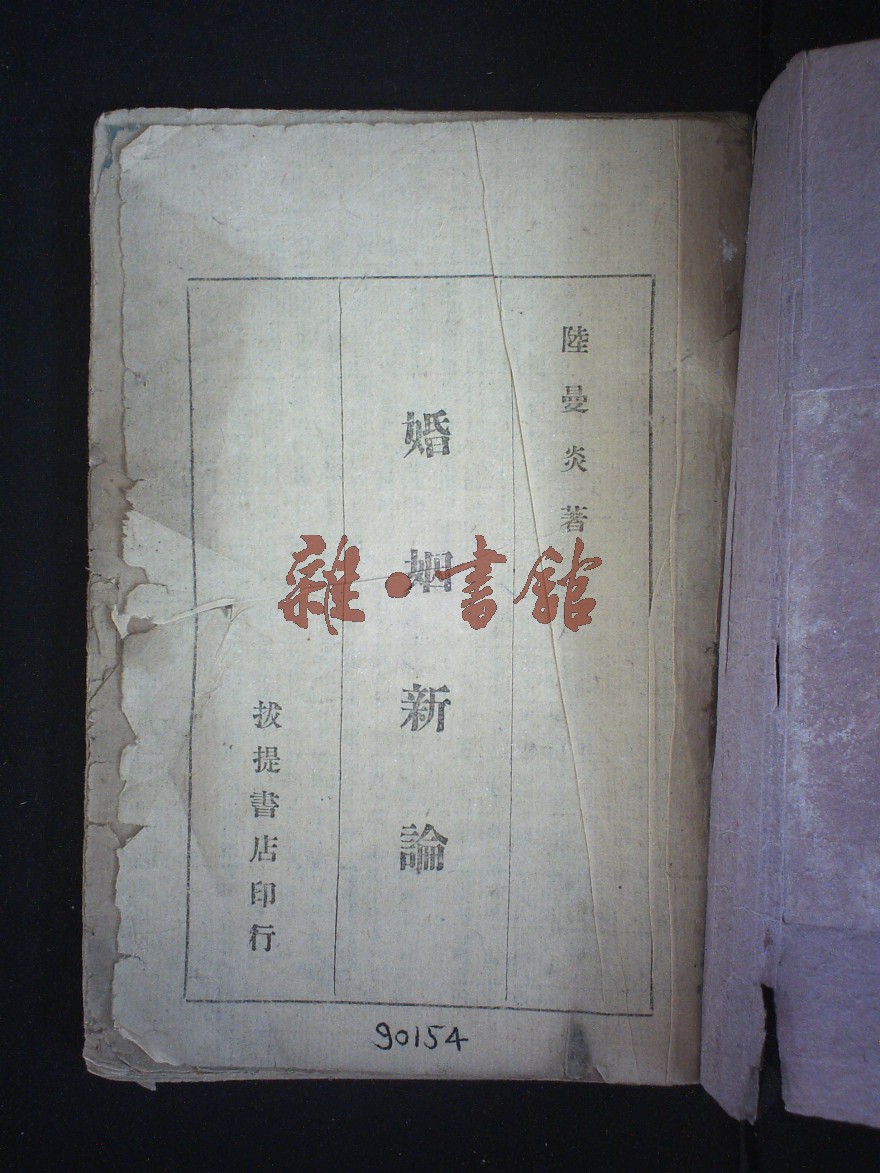 陸曼炎著
婚姻新論
拔提書店印行
雜·書館
90154